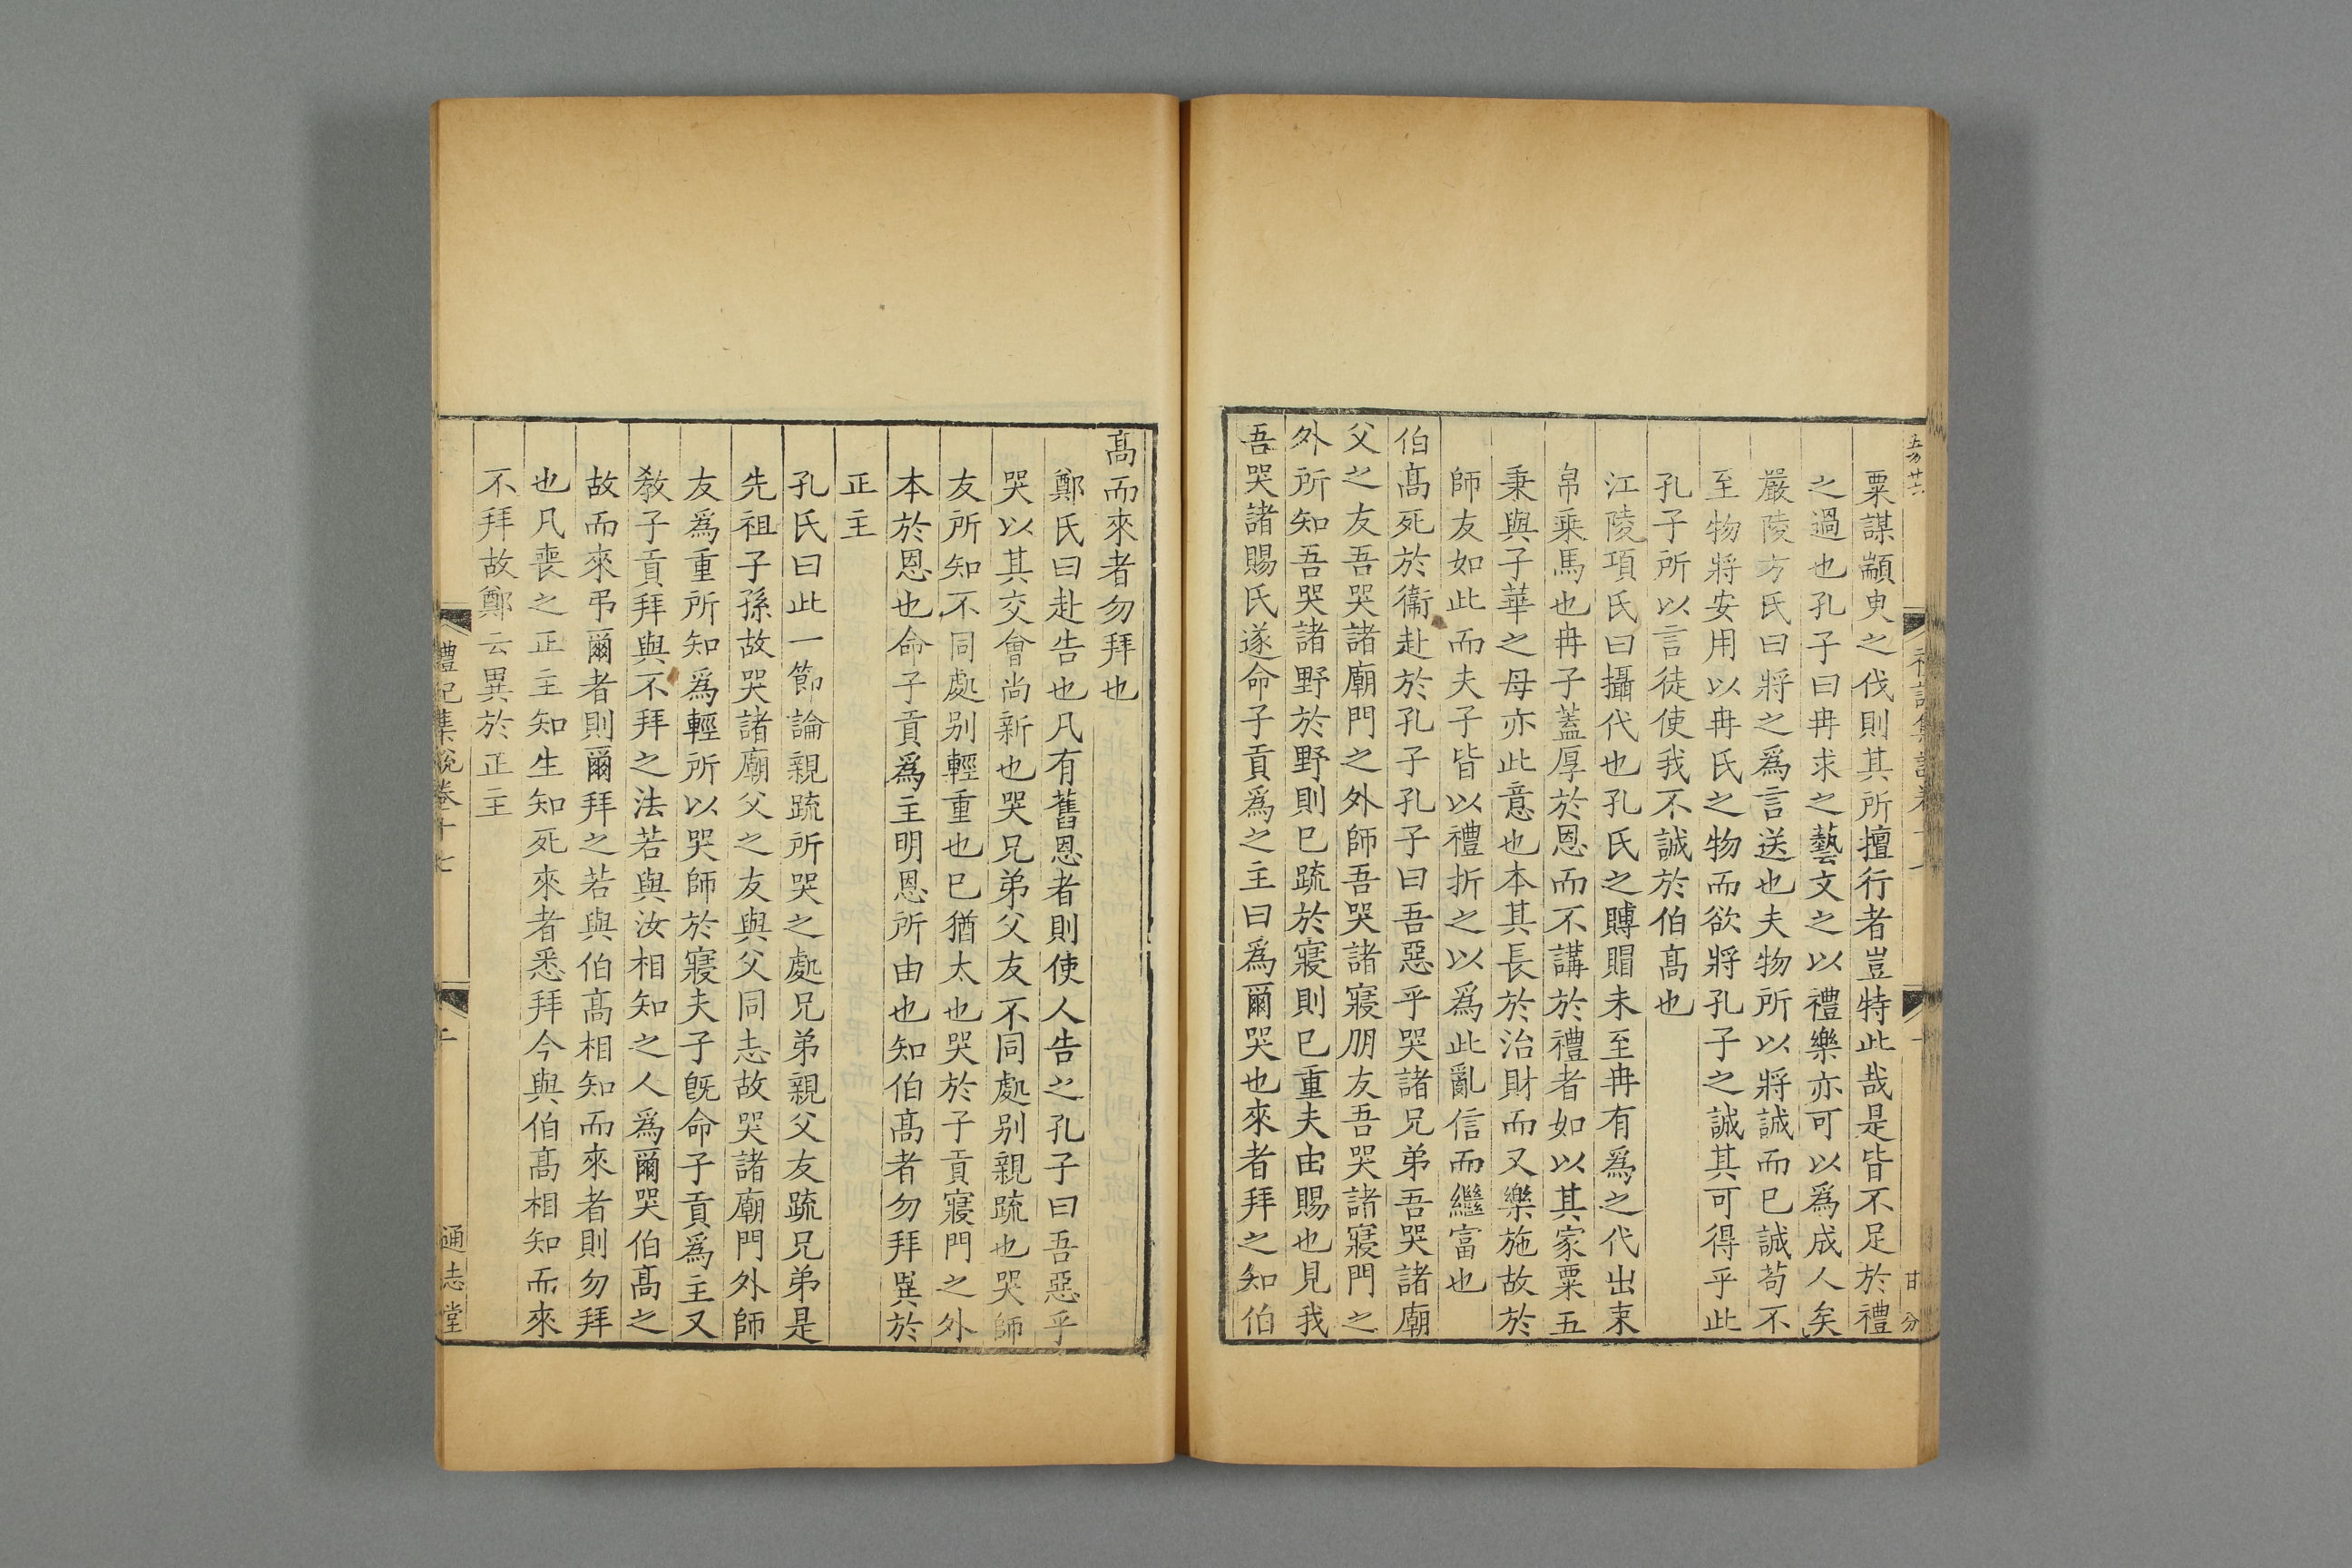 粟謀顓臾之伐則其所擅行者豈特此哉是皆不足於禮
之過也孔子曰冉求之藝文之以禮樂亦可以爲成人矣
嚴陵方氏曰將之爲言送也夫物所以將誠而已誠苟不
至物將安用以冉氏之物而欲將孔子之誠其可得乎此
孔子所以言徒使我不誠於伯髙也
江陵項氏曰攝代也孔氏之賻賵未至冉有爲之代出束
帛乗馬也冉子蓋厚於恩而不講於禮者如以其家粟五
秉與子華之母亦此意也本其長於治財而又樂施故於
師友如此而夫子皆以禮折之以爲此亂信而繼富也
伯髙死於衞赴於孔子孔子曰吾惡乎哭諸兄弟吾哭諸廟
父之友吾哭諸廟門之外師吾哭諸寢朋友吾哭諸寢門之
外所知吾哭諸野於野則已疏於寢則已重夫由賜也見我
吾哭諸賜氏遂命子貢爲之主曰爲爾哭也來者拜之知伯
髙而來者勿拜也
鄭氏曰赴告也凡有舊恩者則使人告之孔子曰吾惡乎
哭以其交會尚新也哭兄弟父友不同處别親疏也哭師
友所知不同處别輕重也已猶太也哭於子貢寢門之外
本於恩也命子貢爲主明恩所由也知伯髙者勿拜異於
正主
孔氏曰此一節論親疏所哭之處兄弟親父友疏兄弟是
先祖子孫故哭諸廟父之友與父同志故哭諸廟門外師
友爲重所知爲輕所以哭師於寢夫子旣命子貢爲主又
敎子貢拜與不拜之法若與汝相知之人爲爾哭伯髙之
故而來弔爾者則爾拜之若與伯髙相知而來者則勿拜
也凡喪之正主知生知死來者悉拜今與伯髙相知而來
不拜故鄭云異於正主
禮記集說卷十七
通志堂